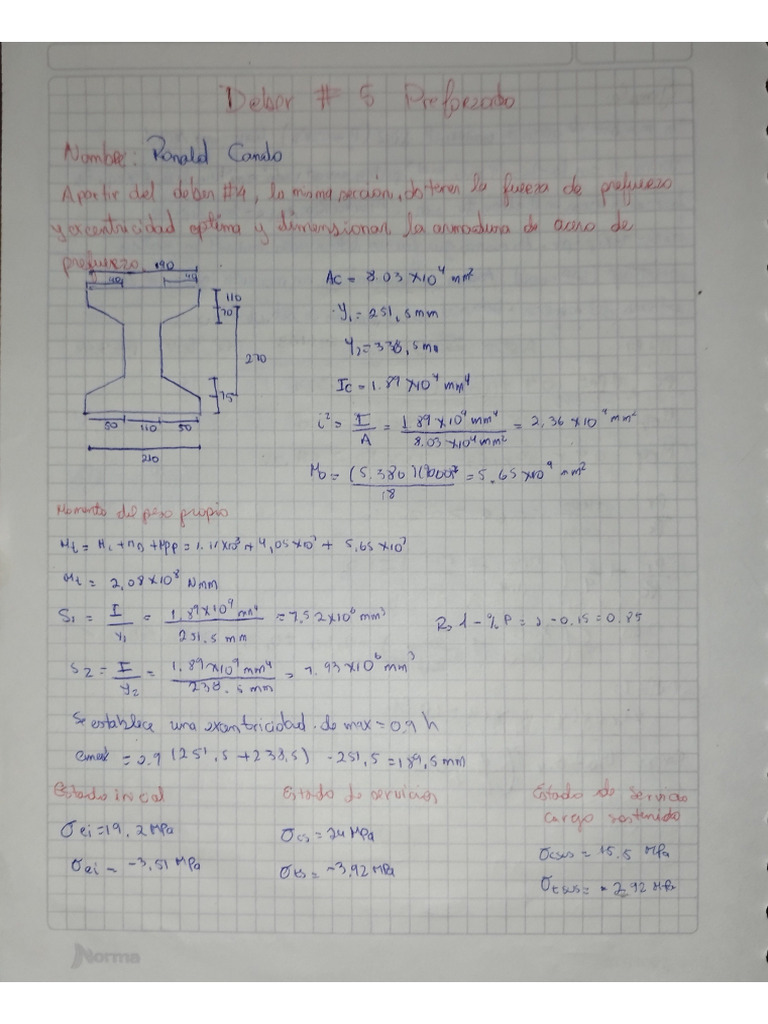 Deber # 5 Preforzado
Nombre: Ronald Cando
A partir del deber #4, la misma sección, obtener la fuerza de prefuerzo
y excentricidad optima y dimensionar la armadura de acero de
prefuerzo.
190
40 40
110
70
270
75
50 110 50
210
Ac = 8.03×10⁴ mm²
y₁ = 251,5 mm
y₂ = 338,5 mm
Ic = 1.89×10⁹ mm⁴
i² = I/A = 1.89×10⁹ mm⁴ / 8.03×10⁴ mm² = 2,36×10⁴ mm²
Mo = = 5.65×10⁹ mm²
Momento del peso propio
Mt = M₁ + MD + Mpp = 1.11×10⁸ + 4,05×10⁷ + 5,65×10⁷
Mt = 2,08×10⁸ Nmm
S₁ = I/y₁ = 1,89×10⁹ mm⁴ / 251.5 mm = 7,52×10⁶ mm³ R = 1 - %P = 1 - 0.15 = 0.85
S₂ = I/y₂ = 1.89×10⁹ mm⁴ / 238.5 mm = 7.93×10⁶ mm³
Se establece una excentricidad de max = 0.9 h
emax = 0.9 (251,5 + 238,5) - 251,5 = 189,5 mm
Estado inicial Estado de servicios Estado de servicio
cargo sostenido
σci = 19,2 MPa σcs = 24 MPa σcsus = 15.5 MPa
σti = -3,51 MPa σts = -3,92 MPa σtsus = -2,92 MPa
Norma